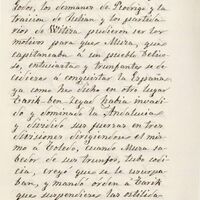 todos, los desmanes de Rodrigo y la
traicion de Julian y los partida-
rios de Witiza pudieron ser los
motivos para que Muza, que
capitaneaba á un pueblo
entusiasta y triunfante se de-
cidiera á conquistar la España
ya como he dicho en otro lugar
Tarik-ben-Zeyad habia invadi-
do y dominado la Andalucia
y dividió sus fuerzas en tres
divisiones dirigiendose el mis-
mo á Toledo, cuando Muza sa-
bedor de sus triunfos, todo codi-
cia, creyó que se le usurpa-
ban, y mandó orden á Tarik
que suspendiera las ostilida-